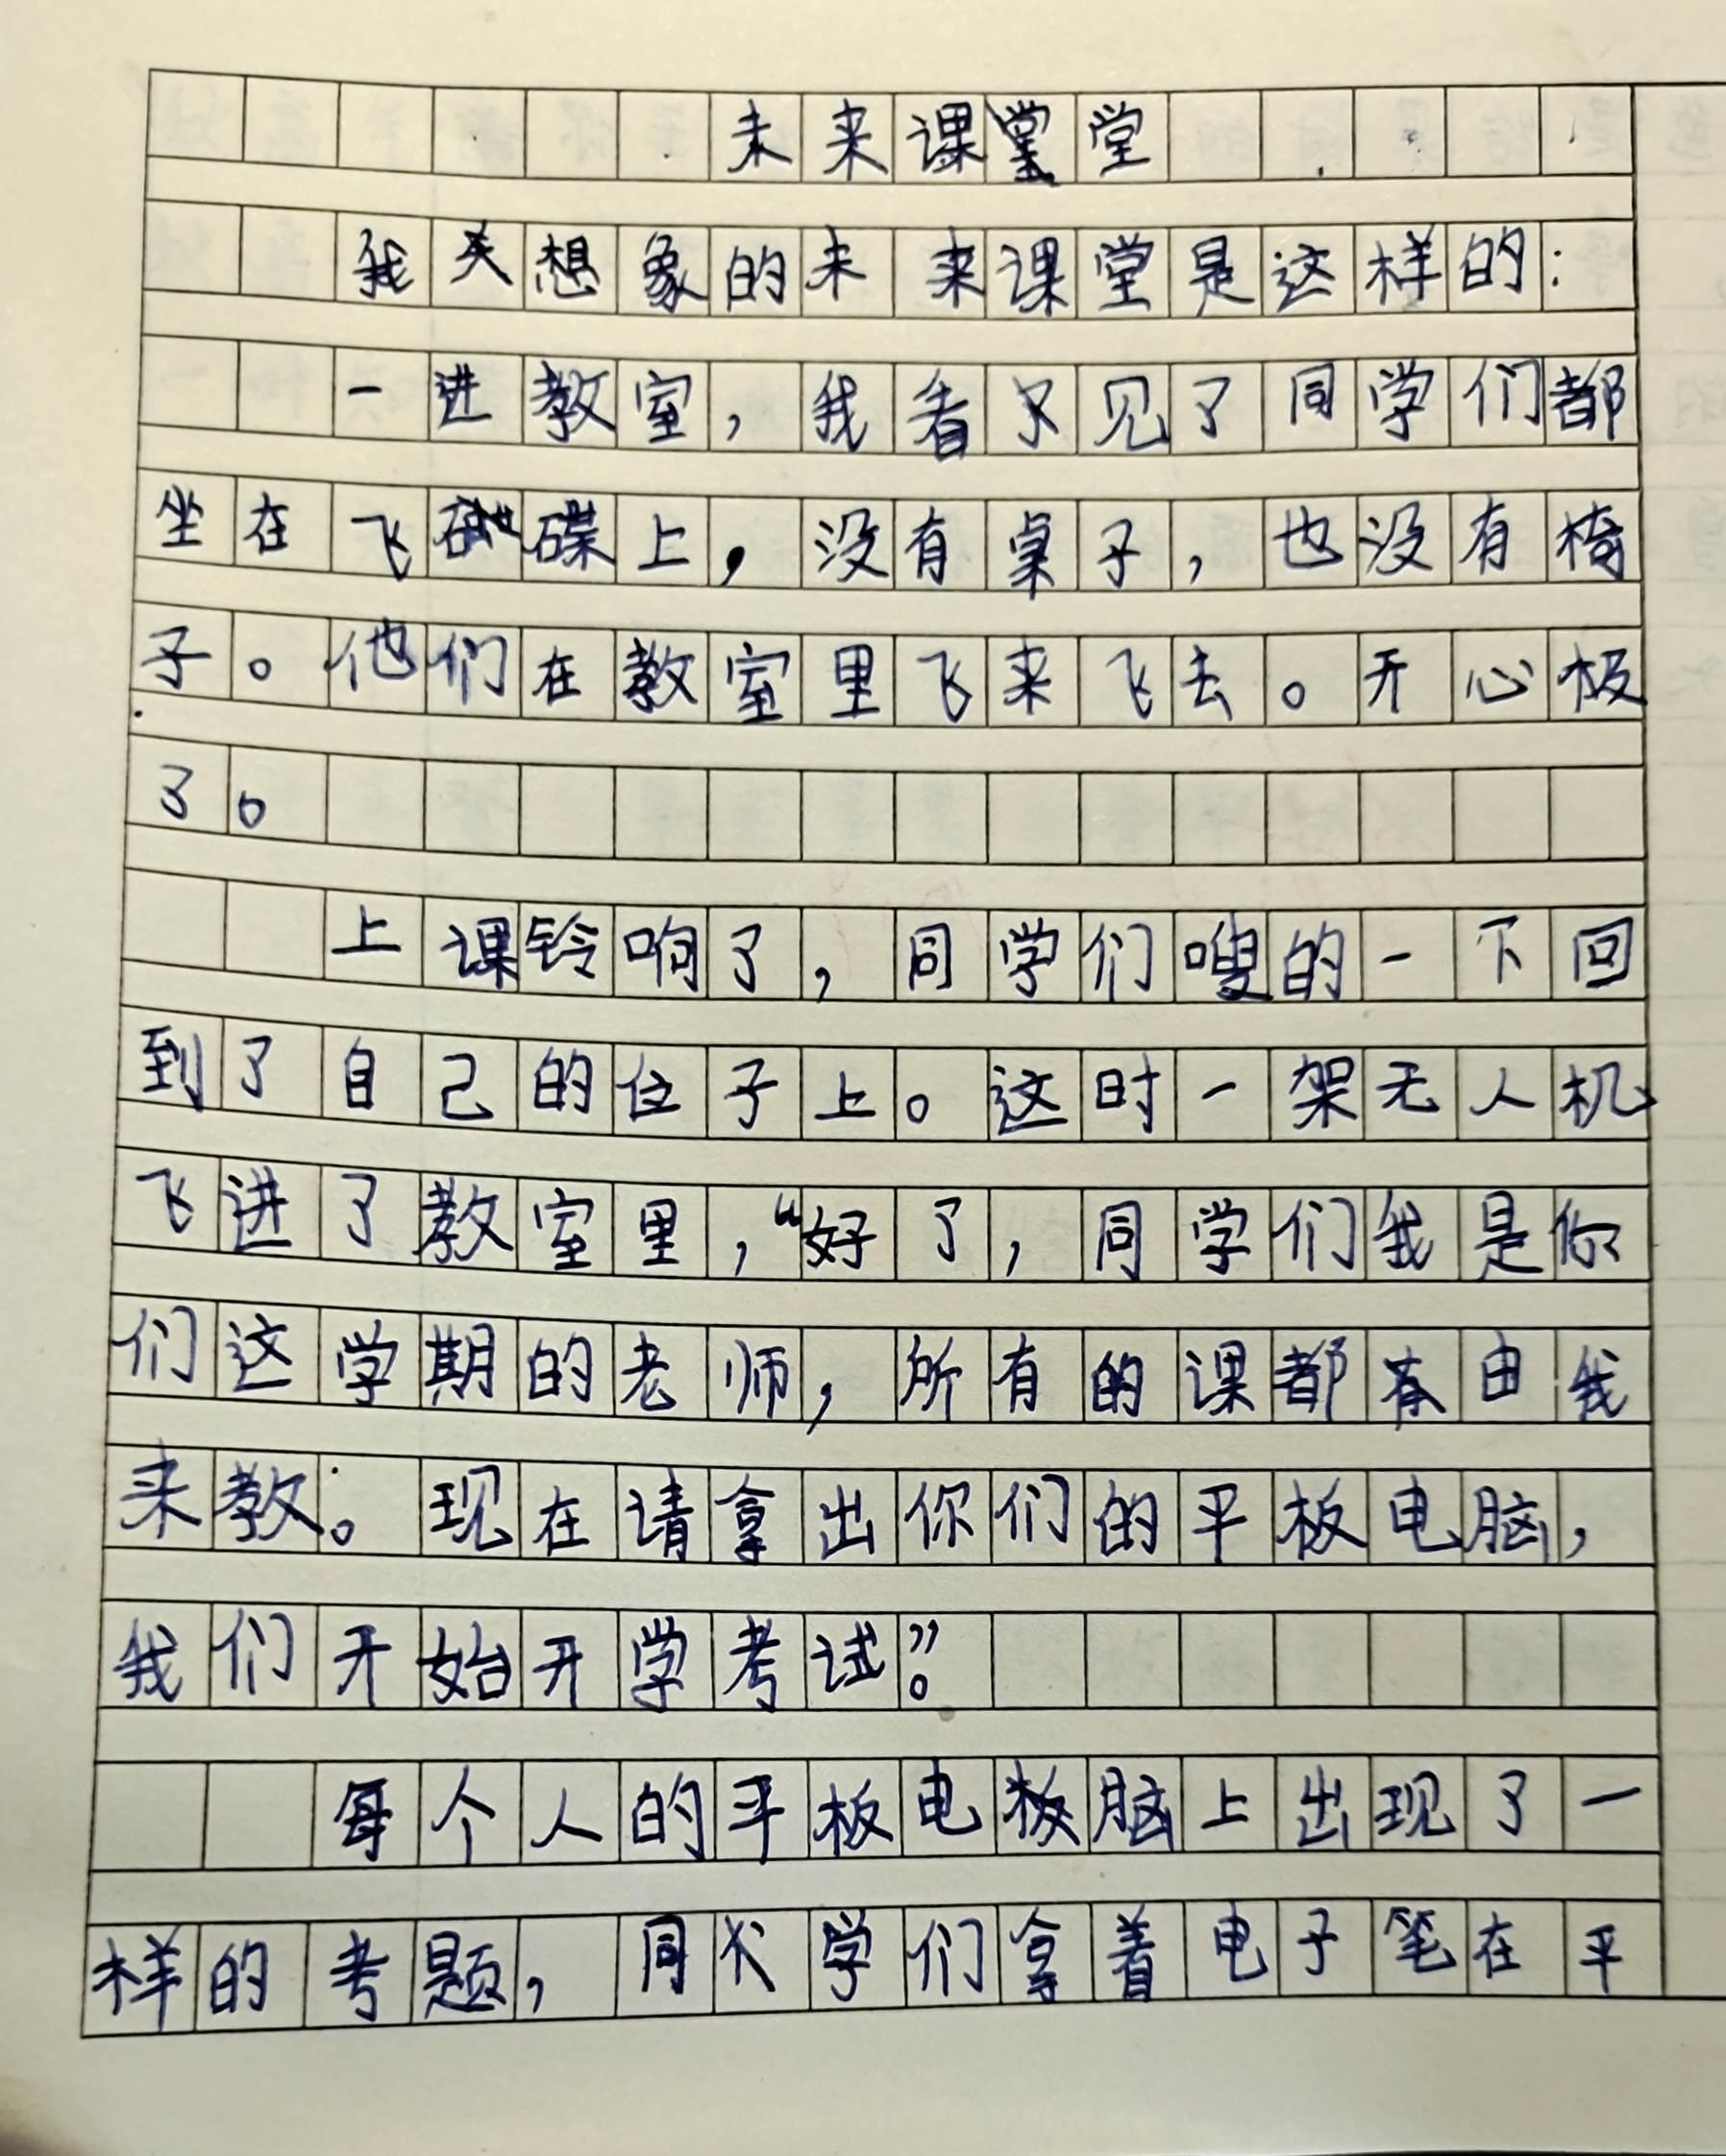 未来课堂
我想象的未来课堂是这样的：
一进教室，我看见了同学们都
坐在飞碟上，没有桌子，也没有椅
子。他们在教室里飞来飞去。开心极
了。
上课铃响了，同学们嗖的一下回
到了自己的位子上。这时一架无人机
飞进了教室里，“好了，同学们我是你
们这学期的老师，所有的课都由我
来教。现在请拿出你们的平板电脑，
我们开始开学考试”。
每个人的平板电脑上出现了一
样的考题，同学们拿着电子笔在平